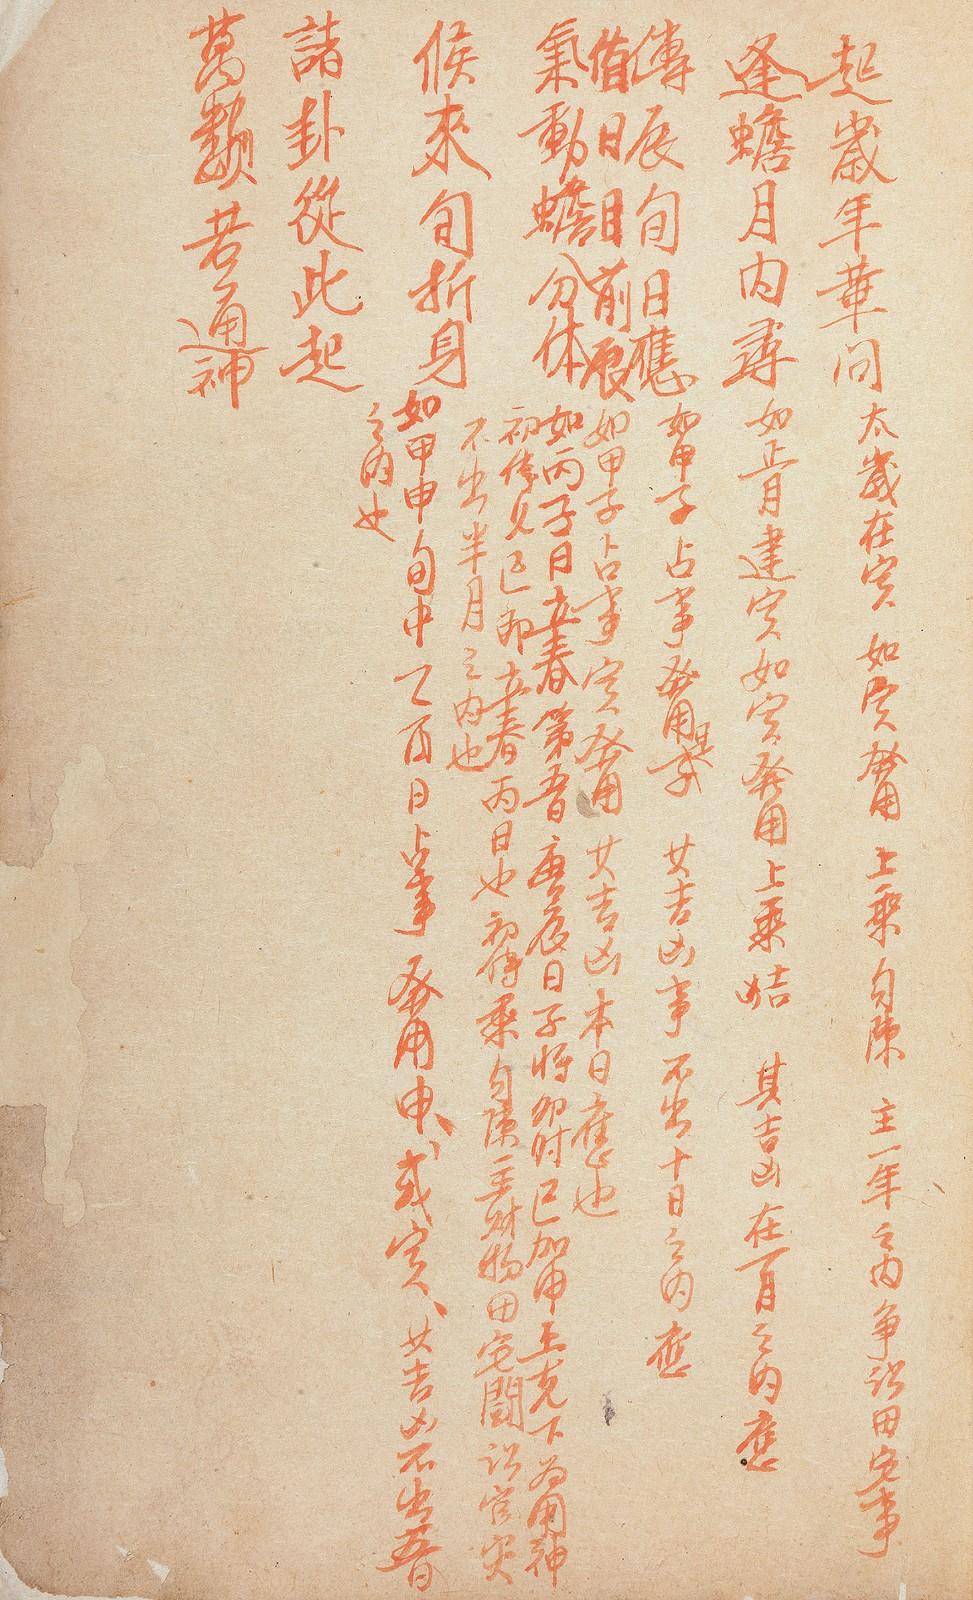 起歲年華问 太歲在寅 如寅發用 上乘勾陳 主一年之内争訟田宅事
逢蟾月内尋 如正月建寅如寅發用上乘 其吉凶在一月之内應
傳辰旬日應 如甲子占事發用 其吉凶事不出十日之内應
值日目前辰 如甲子占事寅發用 其吉凶本日應也
氣動蟾分体 如丙子日立春第五日庚辰日子将卯时巳加申上克下为用神
初傳見巳卯立春丙日也初傳乘勾陳主财物田宅鬪訟官災
不出半月之内也
候來旬折身 如甲申旬中乙酉日占事 發用申、或寅、其吉凶不出五日
之内也
諸卦從此起
萬類若通神